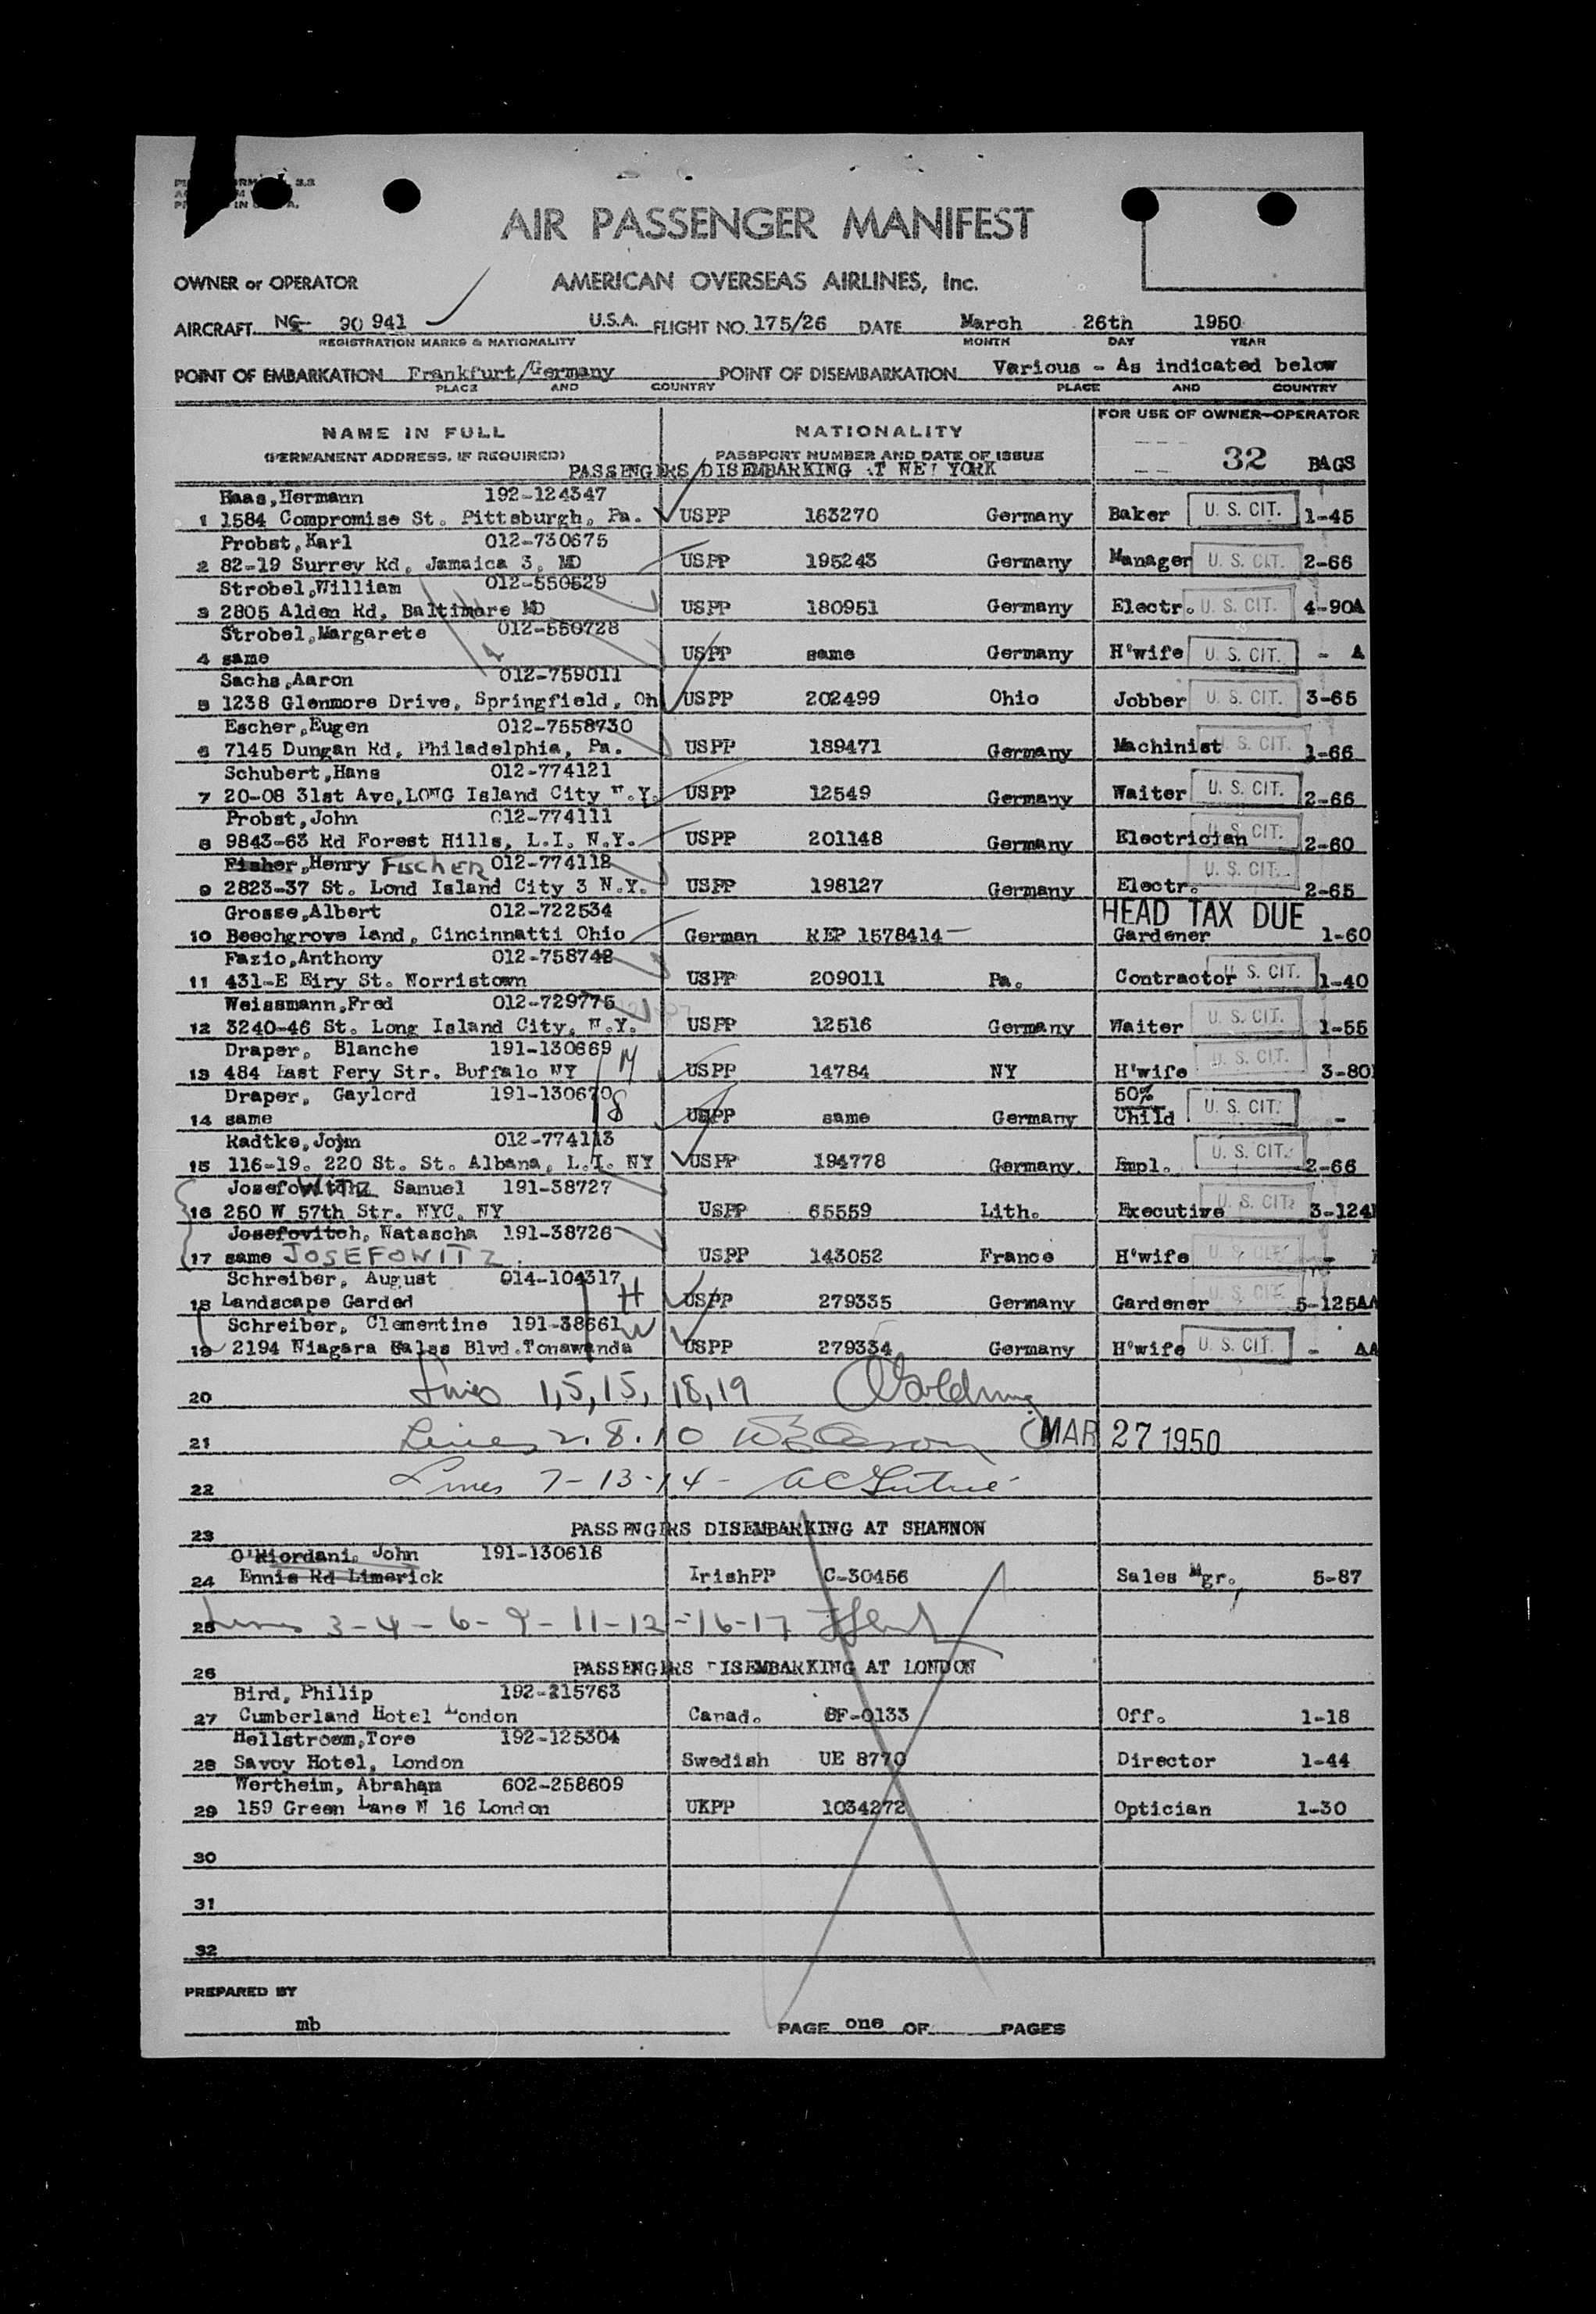 AIR PASSENGER MANIFEST
OWNER or OPERATOR AMERICAN OVERSEAS AIRLINES, Inc.
AIRCRAFT NC 90 941 U.S.A. FLIGHT NO. 175/26 DATE March 26th 1950
REGISTRATION MARKS & NATIONALITY MONTH DAY YEAR
POINT OF EMBARKATION Frankfurt/Germany POINT OF DISEMBARKATION Various - As indicated below
PLACE AND COUNTRY PLACE AND COUNTRY
FOR USE OF OWNER-OPERATOR
NAME IN FULL NATIONALITY
(PERMANENT ADDRESS, IF REQUIRED) PASSPORT NUMBER AND DATE OF ISSUE 32 BAGS
PASSENGERS DISEMBARKING AT NEW YORK
Haas,Hermann 192-124347
1 1584 Compromise St. Pittsburgh, Pa. USPP 163270 Germany Baker U. S. CIT. 1-45
Probst,Karl 012-730675
2 82-19 Surrey Rd, Jamaica 3, MD USPP 195243 Germany Manager U. S. CIT. 2-66
Strobel,William 012-550529
3 2805 Alden Rd, Baltimore MD USPP 180951 Germany Electr. U. S. CIT. 4-90A
Strobel,Margarete 012-550728
4 same USPP same Germany H'wife U. S. CIT. - A
Sachs,Aaron 012-759011
5 1238 Glenmore Drive, Springfield, Oh USPP 202499 Ohio Jobber U. S. CIT. 3-65
Escher,Eugen 012-7558730
6 7145 Dungan Rd, Philadelphia, Pa. USPP 189471 Germany Machinist U. S. CIT. 1-66
Schubert,Hans 012-774121
7 20-08 31st Ave,LONG Island City N.Y. USPP 12549 Germany Waiter U. S. CIT. 2-66
Probst,John 012-774111
8 9843-63 Rd Forest Hills, L.I. N.Y. USPP 201148 Germany Electrician U. S. CIT. 2-60
Fisher,Henry FISCHER 012-774112
9 2823-37 St. Lond Island City 3 N.Y. USPP 198127 Germany Electr. U. S. CIT. 2-65
Grosse,Albert 012-722534 HEAD TAX DUE
10 Beechgrove Land, Cincinnatti Ohio German REP 1578414 Gardener 1-60
Fazio,Anthony 012-758742
11 431-E Eiry St. Norristown USPP 209011 Pa. Contractor U. S. CIT. 1-40
Weissmann,Fred 012-729775
12 3240-46 St. Long Island City, N.Y. USPP 12516 Germany Waiter U. S. CIT. 1-55
Draper, Blanche 191-130669 M
13 484 East Fery Str. Buffalo NY USPP 14784 NY H'wife U. S. CIT. 3-80
Draper, Gaylord 191-130670 8 50%
14 same USPP same Germany Child U. S. CIT. -
Radtke,John 012-774113
15 116-19. 220 St. St. Albans, L.I. NY USPP 194778 Germany Empl. U. S. CIT. 2-66
JosefoWITZ Samuel 191-38727
16 250 W 57th Str. NYC. NY USPP 65559 Lith. Executive U. S. CIT. 3-124
Josefovitch, Natascha 191-38726
17 same JOSEFOWITZ USPP 143052 France H'wife U. S. CIT. -
Schreiber, August 014-104317 H
18 Landscape Garded USPP 279335 Germany Gardener U. S. CIT. 5-125AA
Schreiber, Clementine 191-38661 W
19 2194 Niagara Galss Blvd.Tonawanda USPP 279334 Germany H'wife U. S. CIT. - AA
20 Lines 1,5,15, 18,19
21 Lines 2.8.10 MAR 27 1950
22 Lines 7-13-14-
23 PASSENGERS DISEMBARKING AT SHANNON
O'Riordani, John 191-130618
24 Ennis Rd Limerick IrishPP C-30456 Sales Mgr. 5-87
25 Lines 3-4-6-9-11-12-16-17
26 PASSENGERS DISEMBARKING AT LONDON
Bird, Philip 192-215763
27 Cumberland Hotel London Canad. DF-0133 Off. 1-18
Hellstroem,Tore 192-125304
28 Savoy Hotel, London Swedish UE 8770 Director 1-44
Wertheim, Abraham 602-258609
29 159 Green Lane N 16 London UKPP 1034272 Optician 1-30
30
31
32
PREPARED BY
mb PAGE one OF PAGES